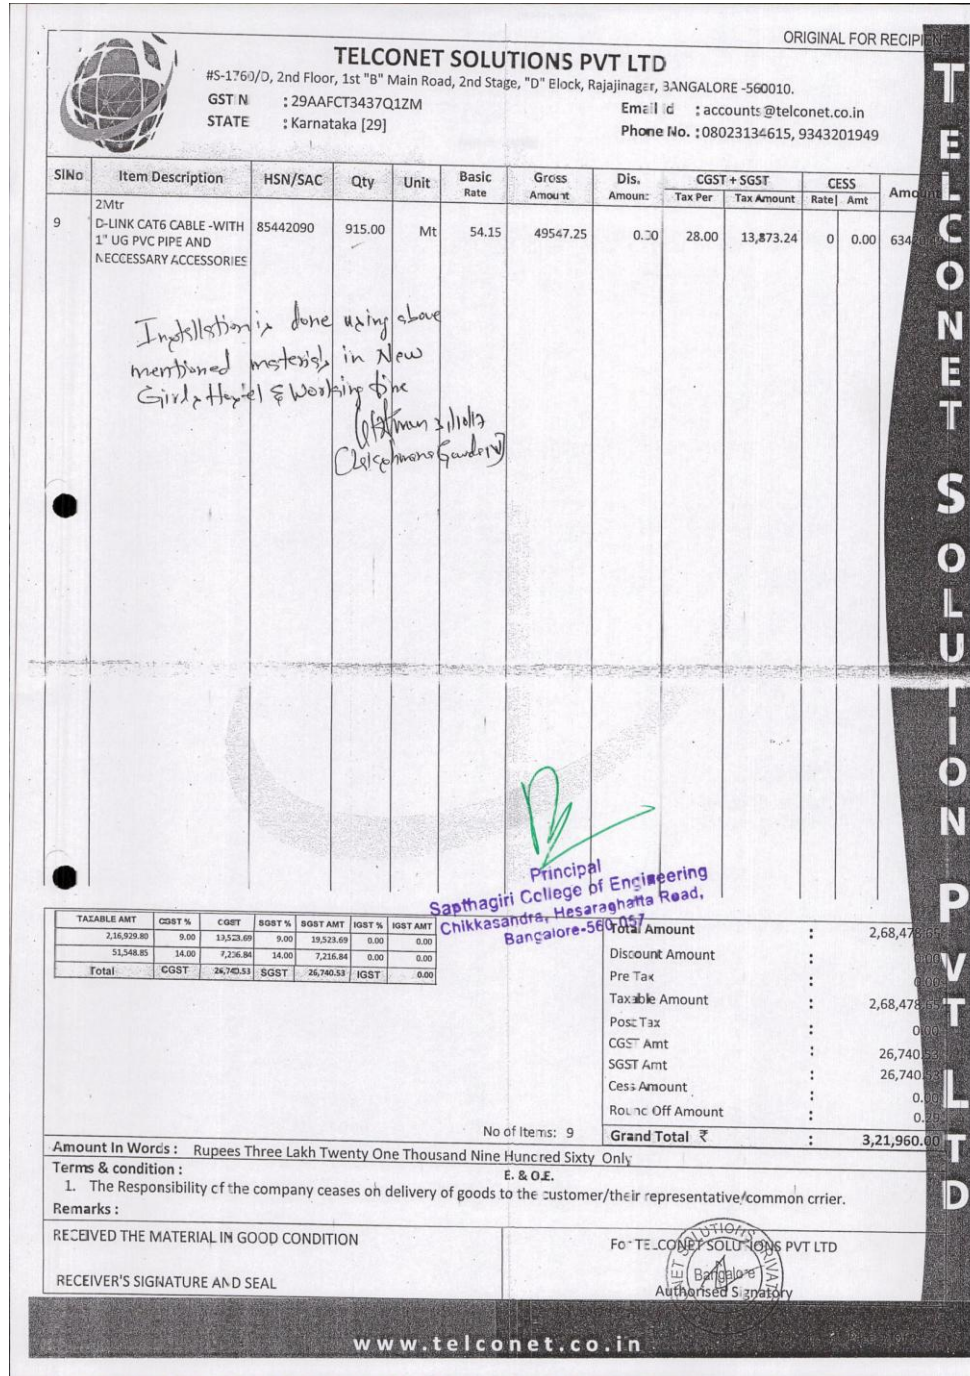 ORIGINAL FOR RECIPIENT
TELCONET SOLUTIONS PVT LTD
#S-1760/D, 2nd Floor, 1st "B" Main Road, 2nd Stage, "D" Block, Rajajinagar, BANGALORE -560010.
GSTIN : 29AAFCT3437Q1ZM
Email Id : accounts@telconet.co.in
STATE : Karnataka [29]
Phone No. : 08023134615, 9343201949
SlNo Item Description HSN/SAC Qty Unit Basic Rate Gross Amount Dis. Amount CGST + SGST Tax Per Tax Amount CESS Rate Amt Amount
2Mtr
9 D-LINK CAT6 CABLE -WITH 85442090 915.00 Mt 54.15 49547.25 0.00 28.00 13,873.24 0 0.00
1" UG PVC PIPE AND
NECCESSARY ACCESSORIES
Installation is done using above
mentioned materials in New
Girls Hostel & Working fine
Principal
Sapthagiri College of Engineering
Chikkasandra, Hesaraghatta Road,
Bangalore-560 057
TAXABLE AMT CGST % CGST SGST % SGST AMT IGST % IGST AMT
2,16,929.80 9.00 9.00 19,523.69 0.00 0.00
51,548.85 14.00 14.00 7,216.84 0.00 0.00
Total CGST 26,740.53 SGST 26,740.53 IGST 0.00
Total Amount : 2,68,478.65
Discount Amount : 0.00
Pre Tax : 0.00
Taxable Amount : 2,68,478.65
Post Tax : 0.00
CGST Amt : 26,740.53
SGST Amt : 26,740.53
Cess Amount : 0.00
Round Off Amount : 0.29
No of Items: 9
Grand Total ₹ : 3,21,960.00
Amount In Words : Rupees Three Lakh Twenty One Thousand Nine Hundred Sixty Only
Terms & condition : E. & O.E.
1. The Responsibility of the company ceases on delivery of goods to the customer/their representative/common crrier.
Remarks :
RECEIVED THE MATERIAL IN GOOD CONDITION
For TELCONET SOLUTIONS PVT LTD
Bangalore
RECEIVER'S SIGNATURE AND SEAL
Authorised Signatory
www.telconet.co.in
TELCONET SOLUTION PVT LTD